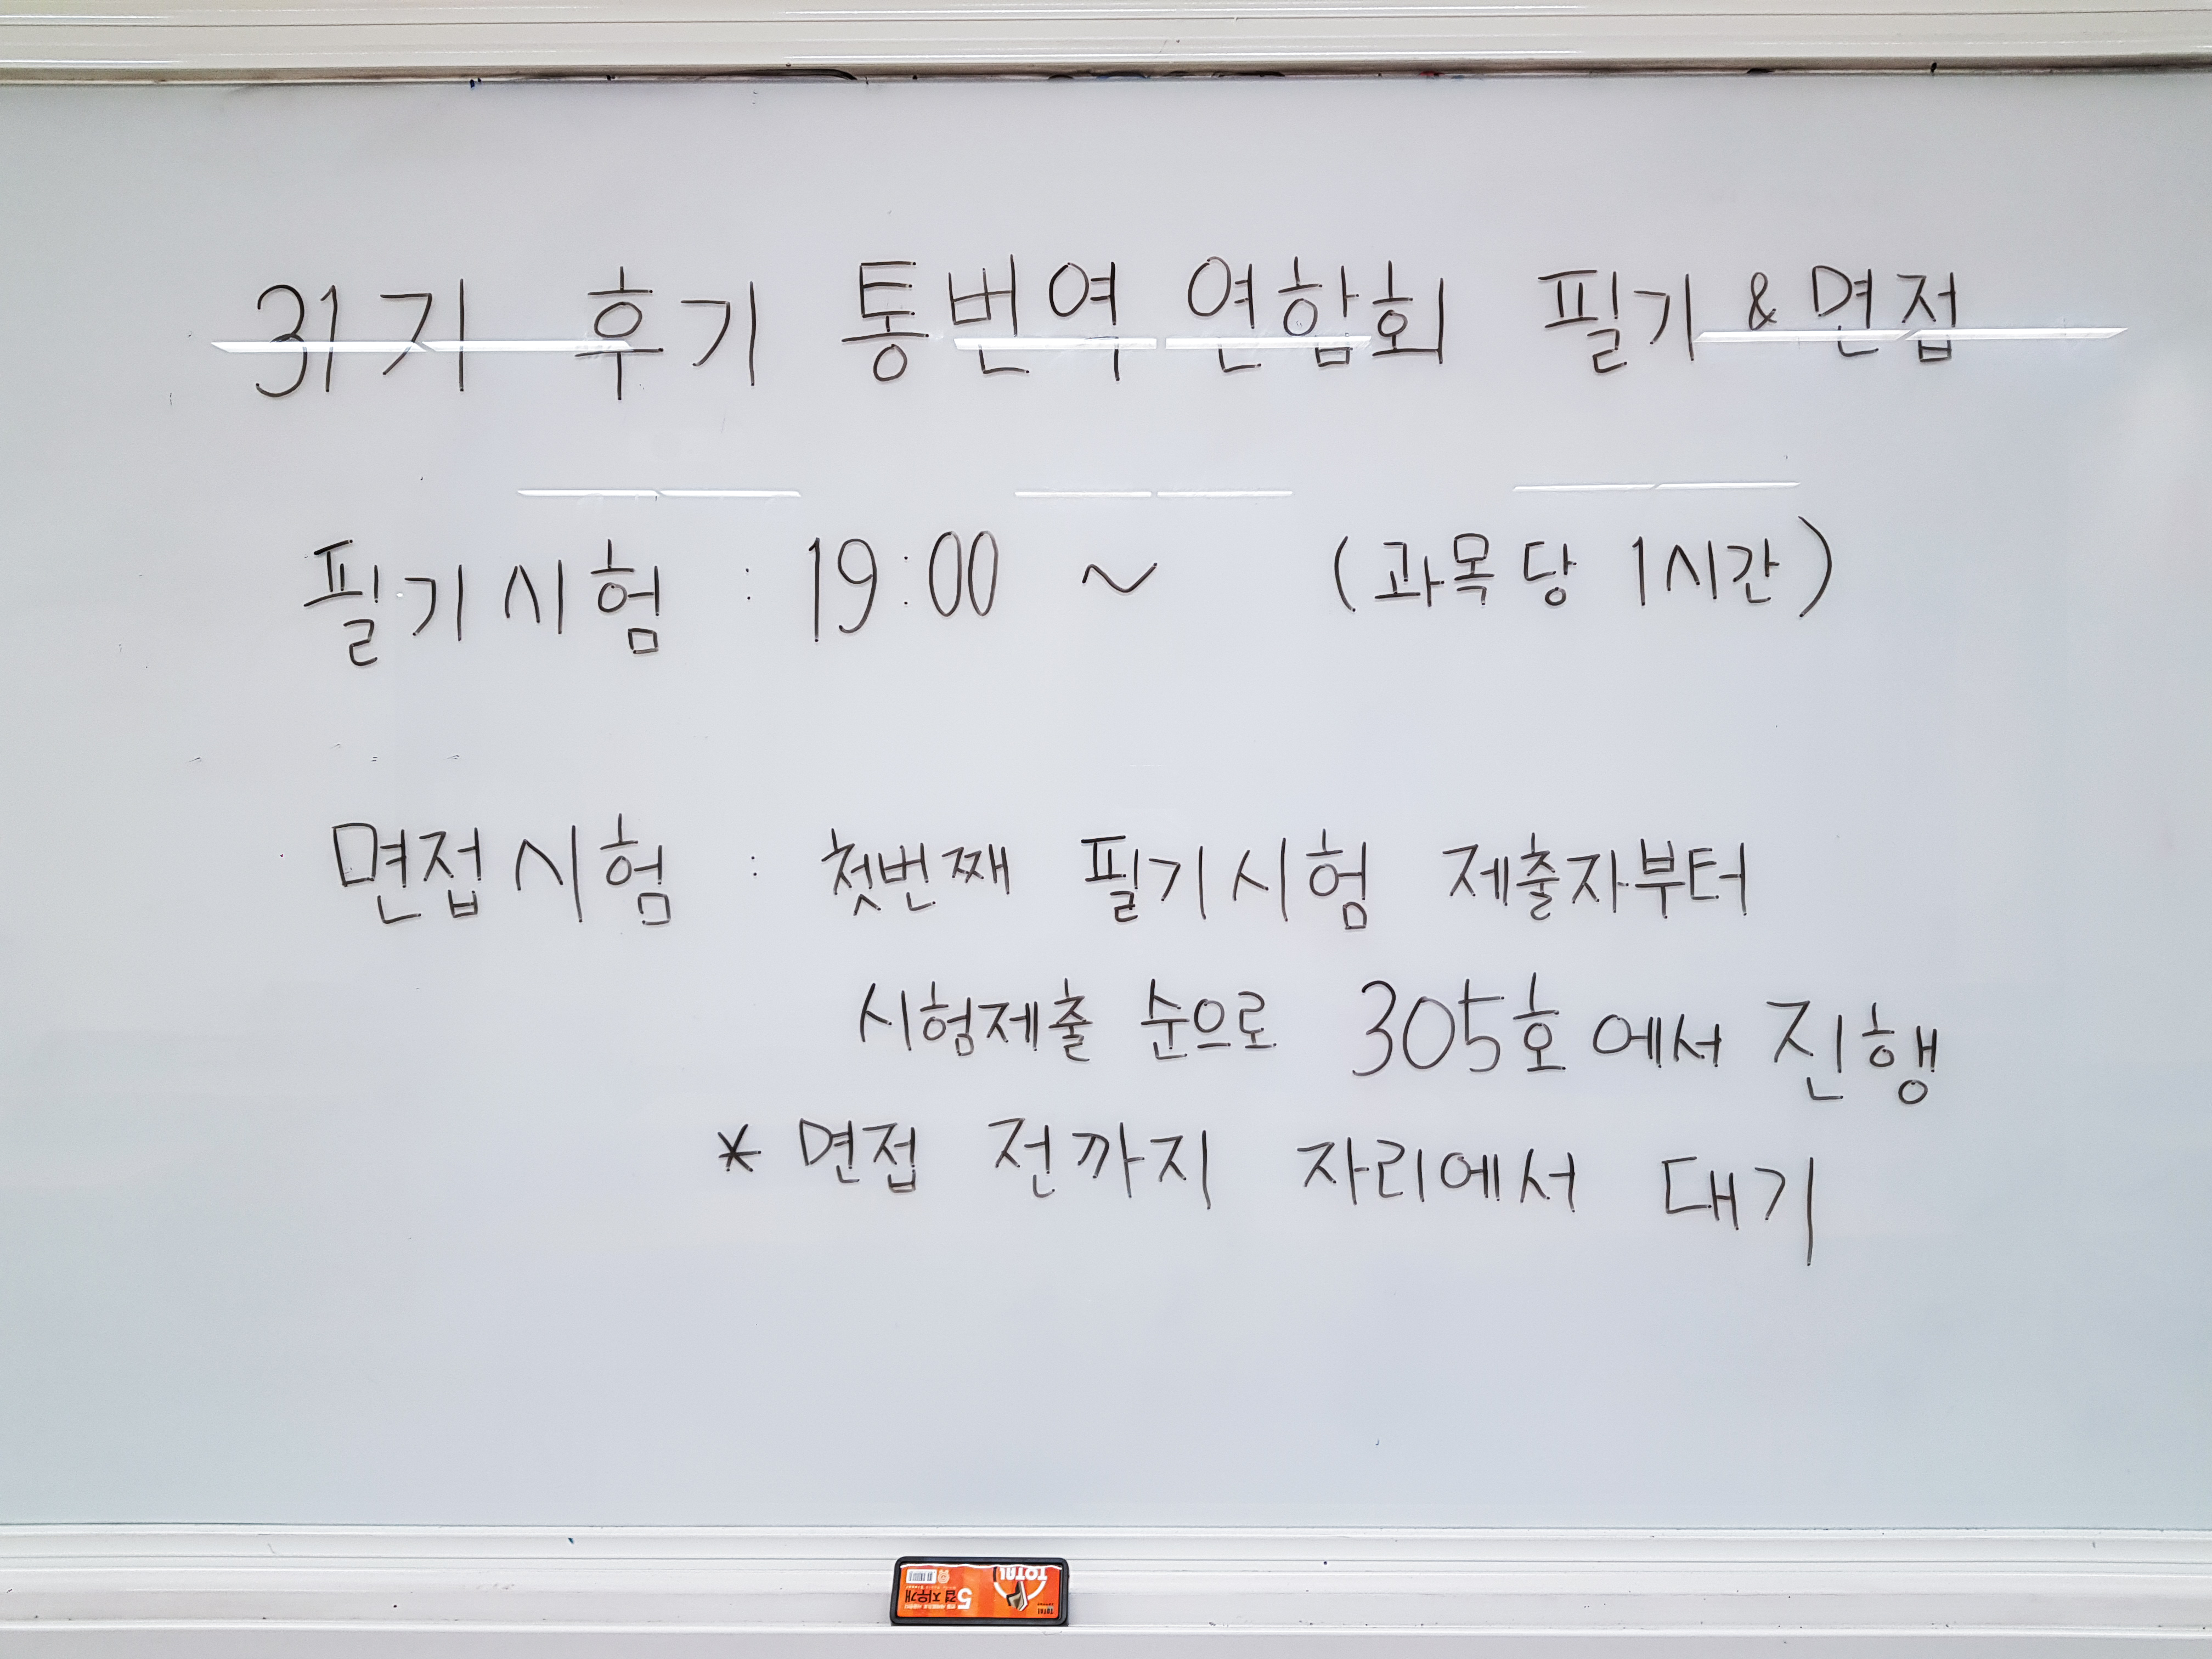 31기 후기 통번역 연합회 필기 & 면접
필기시험 : 19:00 ~ (과목당 1시간)
면접시험 : 첫번째 필기시험 제출자부터
시험제출 순으로 305호에서 진행
* 면접 전까지 자리에서 대기
TOTAL
5겹 지우개
TOTAL